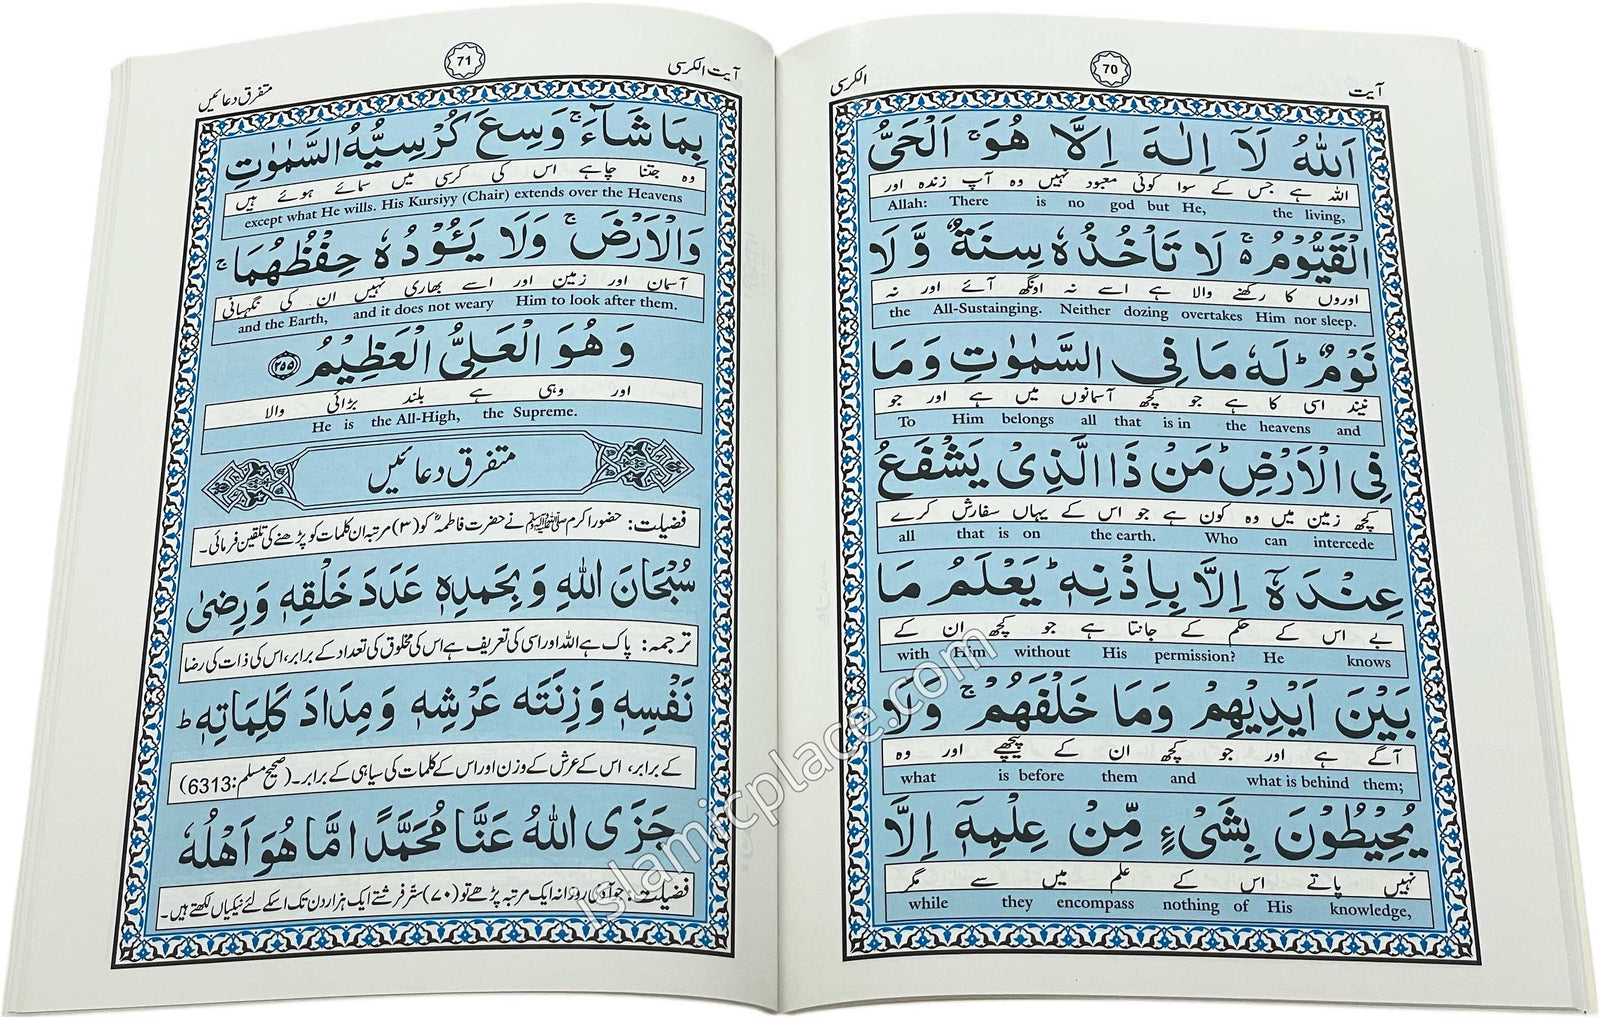 آیت
70
الکرسی
اَللّٰهُ لَاۤ اِلٰهَ اِلَّا هُوَ ۚ اَلْحَیُّ
اللہ ہے جس کے سوا کوئی معبود نہیں وہ آپ زندہ اور
Allah: There is no god but He, the living,
الْقَیُّوْمُ ۚ۬ لَا تَاْخُذُهٗ سِنَةٌ وَّ لَا
اوروں کا رکھنے والا ہے اسے نہ اونگھ آئے اور نہ
the All-Sustainging. Neither dozing overtakes Him nor sleep.
نَوْمٌ ؕ لَهٗ مَا فِی السَّمٰوٰتِ وَ مَا
نیند اسی کا ہے جو کچھ آسمانوں میں ہے اور جو
To Him belongs all that is in the heavens and
فِی الْاَرْضِ ؕ مَنْ ذَا الَّذِیْ یَشْفَعُ
کچھ زمین میں وہ کون ہے جو اس کے یہاں سفارش کرے
all that is on the earth. Who can intercede
عِنْدَهٗۤ اِلَّا بِاِذْنِهٖ ؕ یَعْلَمُ مَا
بے اس کے حکم کے جانتا ہے جو کچھ ان کے
with Him without His permission? He knows
بَیْنَ اَیْدِیْهِمْ وَمَا خَلْفَهُمْ ۚ وَلَا
آگے ہے اور جو کچھ ان کے پیچھے اور وہ
what is before them and what is behind them;
یُحِیْطُوْنَ بِشَیْءٍ مِّنْ عِلْمِهٖۤ اِلَّا
نہیں پاتے اس کے علم میں سے مگر
while they encompass nothing of His knowledge,
آیت الکرسی
71
متفرق دعائیں
بِمَا شَآءَ ۚ وَسِعَ کُرْسِیُّهُ السَّمٰوٰتِ
وہ جتنا چاہے اس کی کرسی میں سمائے ہوئے ہیں
except what He wills. His Kursiyy (Chair) extends over the Heavens
وَالْاَرْضَ ۚ وَلَا یَـُٔوْدُهٗ حِفْظُهُمَا ۚ
آسمان اور زمین اور اسے بھاری نہیں ان کی نگہبانی
and the Earth, and it does not weary Him to look after them.
وَ هُوَ الْعَلِیُّ الْعَظِیْمُ ﴿۲۵۵﴾
اور وہی ہے بلند بڑائی والا
He is the All-High, the Supreme.
متفرق دعائیں
فضیلت: حضور اکرم ﷺ نے حضرت فاطمہؓ کو (۳) مرتبہ ان کلمات کو پڑھنے کی تلقین فرمائی۔
سُبْحَانَ اللهِ وَ بِحَمْدِهٖ عَدَدَ خَلْقِهٖ وَ رِضٰی
ترجمہ: پاک ہے اللہ اور اسی کی تعریف ہے اس کی مخلوق کی تعداد کے برابر، اس کی ذات کی رضا
نَفْسِهٖ وَ زِنَتَه عَرْشِهٖ وَ مِدَادَ کَلِمَاتِهٖ ؕ
کے برابر، اس کے عرش کے وزن اور اس کے کلمات کی سیاہی کے برابر۔ (صحیح مسلم: 6313)
جَزَی اللهُ عَنَّا مُحَمَّدًا مَّا هُوَ اَهْلُهٗ
فضیلت: جو آدمی روزانہ ایک مرتبہ پڑھے تو (۷۰) ستر فرشتے ایک ہزار دن تک اسکے لئے نیکیاں لکھتے ہیں۔
islamicplace.com